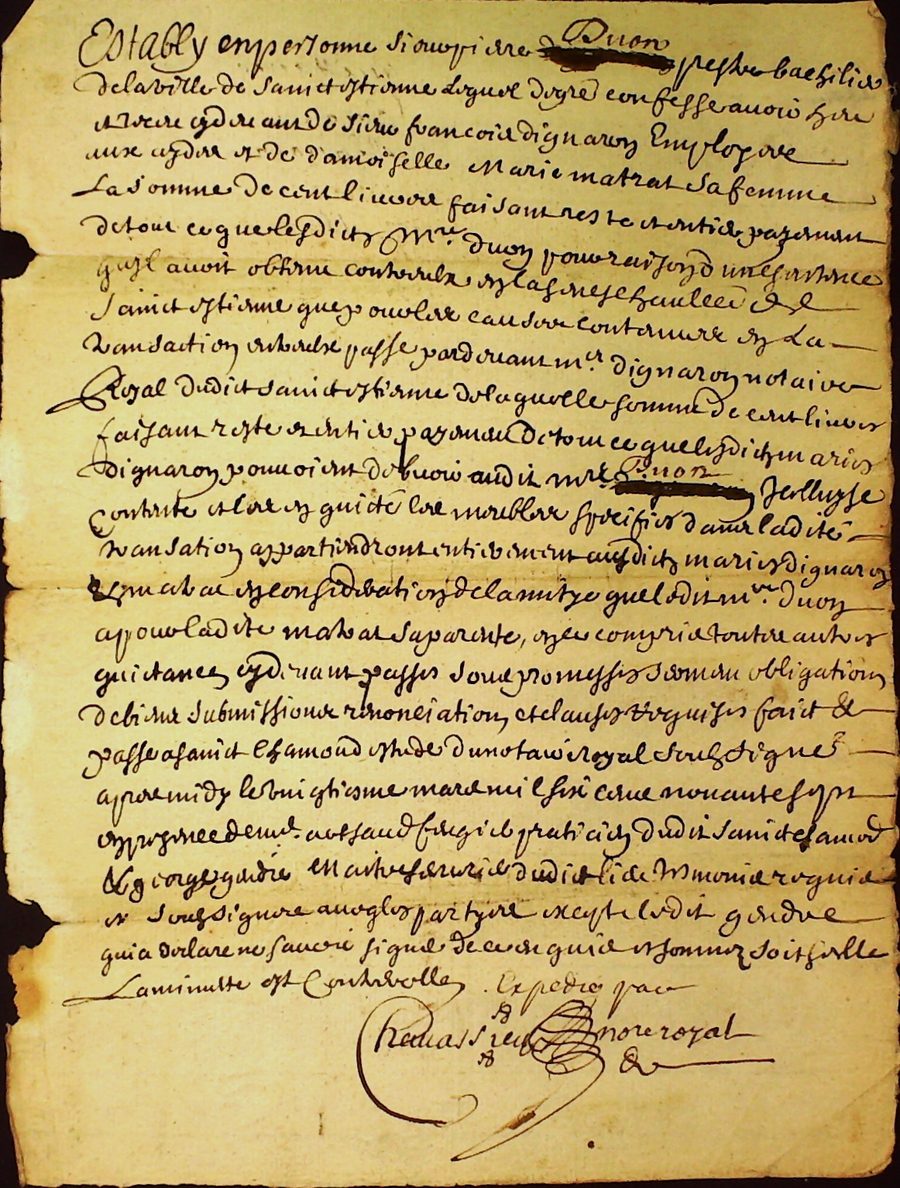 Estably en personne sieur pierre Duon prestre bachilier
de la ville de sainct estienne lequel de gre confesse avoir heu
et receu cy devant de sieur francois dignaron Employee
aux aydes et de damoiselle Marie matrat sa femme
La somme de cent livres faisant reste et entier payement
de tout ce que lesdicts Mre. duon pour raison d une sentence
quil avoit obtenu contre eux en la senechaulcee de
sainct estienne que pour les causes contenues en La
transaction entre eux passe par devant mr. dignaron notaire
Royal dudict sainct estienne de laquelle somme de cent livres
faisant reste et entier payement de tout ce que lesdicts maries
dignaron pouvoient debvoir audit mre Duon
Contente et les en quicte les meubles specifies dans ladite
transation appartiendront entierement ausdicts maries dignaron
et matrat en consideration de lamitye que ledit mre. duon
a pour ladite matrat sa parente, en ce compris toutes autres
quictances cy devant passes soub promesses serment obligation
de biens submissions renonciation et clauses requises faict &
passe a sainct Chamond estude du notaire royal soubsigne
apres midy le vingtiesme mars mil six cens nonante sept
en presence de praticien dudit sainct chamod
& george gendre Maitre dudict lieu tesmoins requis
et soubsignes avec les partyes excepte ledit gendre
qui a declare ne scavoir signer de ce enquis et somme soit scelle
La minutte est Contrerolle Expedie par
Chavassieu nore royal